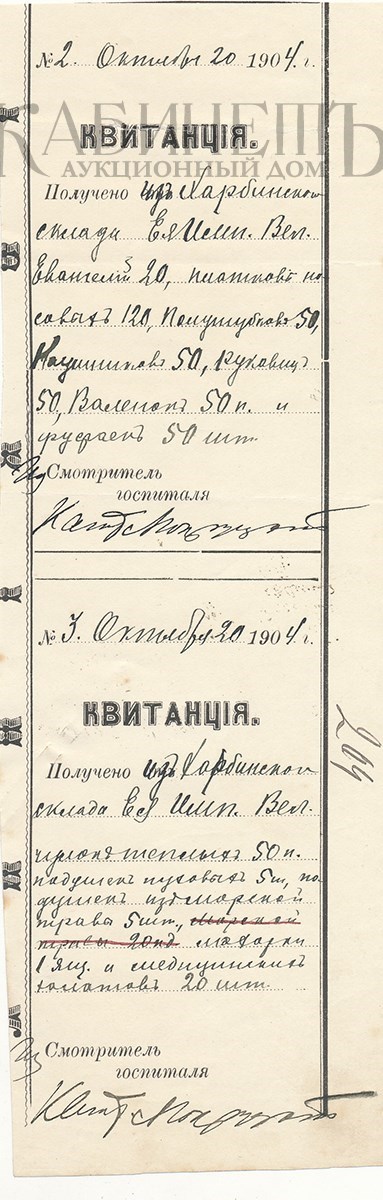 № 2. Октября 20 1904. г.
КАБИНЕТЪ
КВИТАНЦІЯ.
АУКЦИОННЫЙ ДОМ
Получено изъ Харбинского
склада Ея Имп. Вел.
Евангелій 20, платковъ но
совыхъ 120, Полушубковъ 50,
Наушниковъ 50, рукавицъ
50, Валенокъ 50 п. и
фуфаекъ 50 шт.
Смотритель
госпиталя
№ 3. Октября 20 1904. г.
КВИТАНЦІЯ.
264
Получено изъ Харбинского
склада Ея Имп. Вел.
чулокъ теплыхъ 50 п.
подушекъ пуховыхъ 5 ш, по
душекъ изъ морской
травы 5 шт., морской
травы 20 махорки
1 ящ. и медицинскихъ
халатовъ 20 шт.
Смотритель
госпиталя